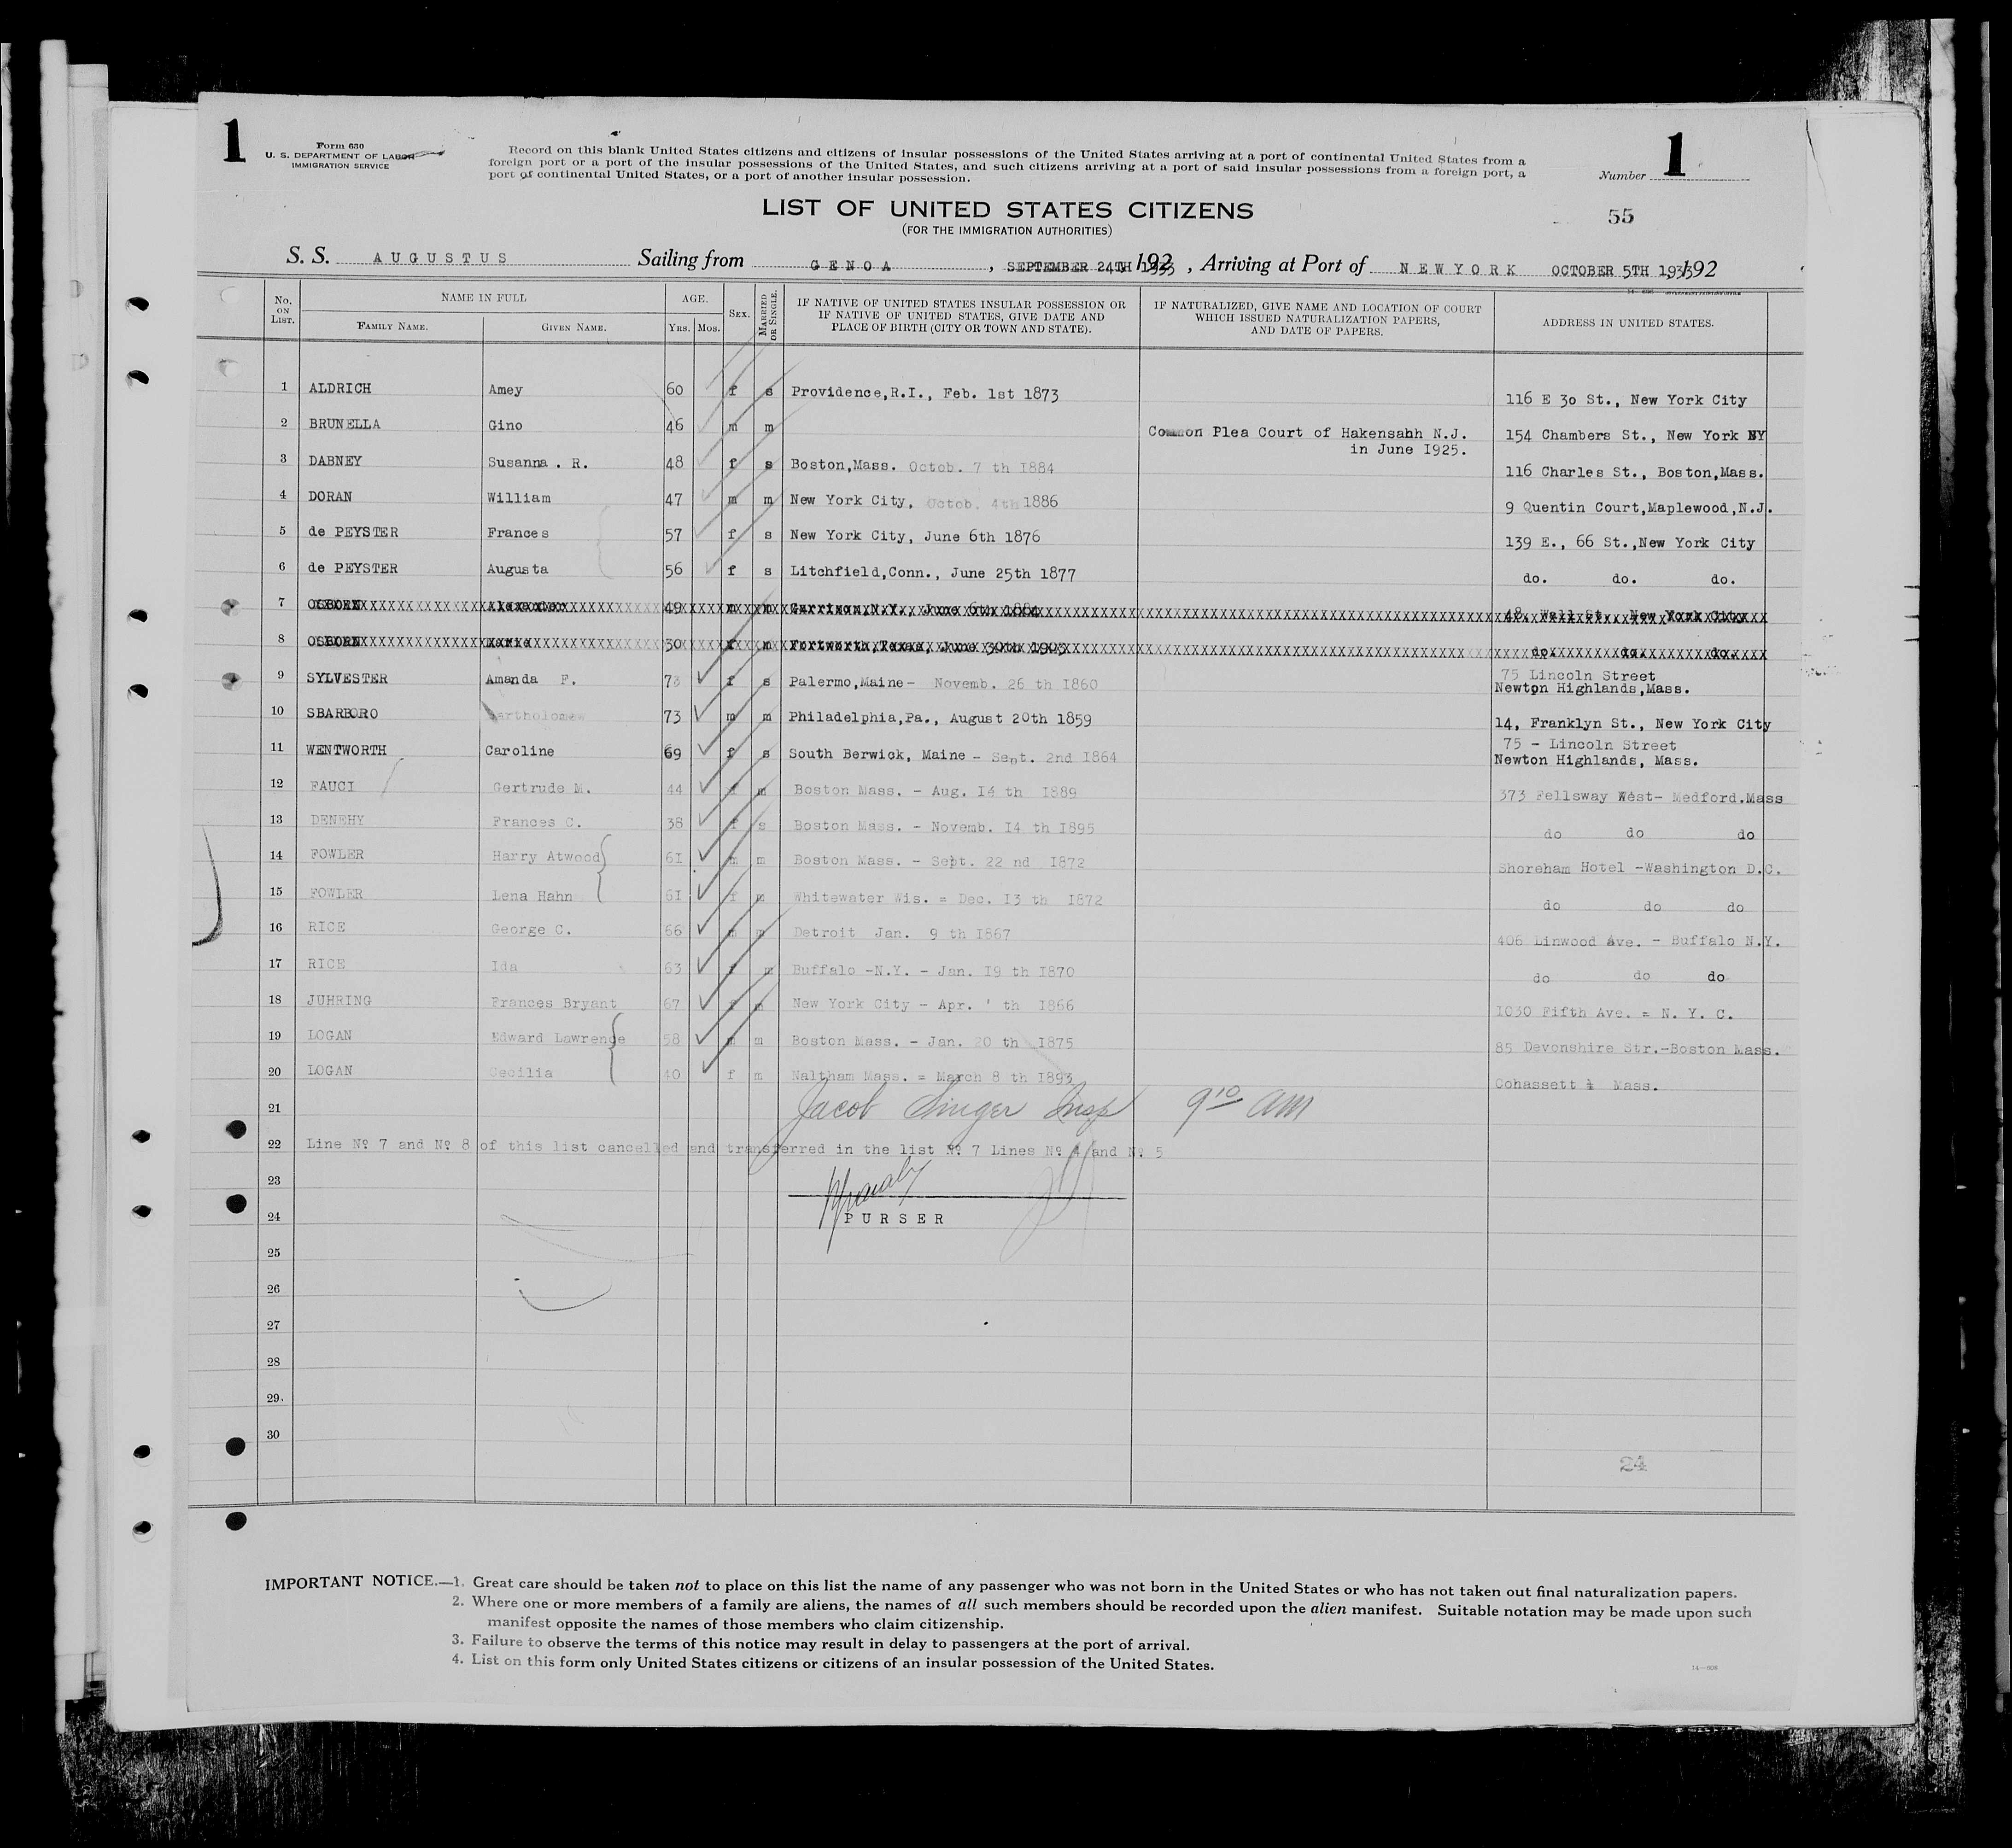 1
Form 630
U. S. DEPARTMENT OF LABOR
IMMIGRATION SERVICE
Record on this blank United States citizens and citizens of insular possessions of the United States arriving at a port of continental United States from a
foreign port or a port of the insular possessions of the United States, and such citizens arriving at a port of said insular possessions from a foreign port, a
port of continental United States, or a port of another insular possession.
Number 1
55
LIST OF UNITED STATES CITIZENS
(FOR THE IMMIGRATION AUTHORITIES)
S. S. AUGUSTUS Sailing from GENOA, SEPTEMBER 24TH 1933 192, Arriving at Port of NEWYORK OCTOBER 5TH 1933, 192
No. ON LIST. NAME IN FULL FAMILY NAME. GIVEN NAME. AGE. YRS. MOS. SEX. MARRIED OR SINGLE. IF NATIVE OF UNITED STATES INSULAR POSSESSION OR IF NATIVE OF UNITED STATES, GIVE DATE AND PLACE OF BIRTH (CITY OR TOWN AND STATE). IF NATURALIZED, GIVE NAME AND LOCATION OF COURT WHICH ISSUED NATURALIZATION PAPERS, AND DATE OF PAPERS. ADDRESS IN UNITED STATES.
1 ALDRICH Amey 60 f s Providence,R.I., Feb. 1st 1873 116 E 30 St., New York City
2 BRUNELLA Gino 46 m m Common Plea Court of Hakensahh N.J. in June 1925. 154 Chambers St., New York NY
3 DABNEY Susanna . R. 48 f s Boston,Mass. Octob. 7 th 1884 116 Charles St., Boston,Mass.
4 DORAN William 47 m m New York City, Octob. 4th 1886 9 Quentin Court,Maplewood,N.J.
5 de PEYSTER Frances 57 f s New York City, June 6th 1876 139 E., 66 St.,New York City
6 de PEYSTER Augusta 56 f s Litchfield,Conn., June 25th 1877 do. do. do.
7 OSBORN Alexander 49 m m Garrison,N.Y., June 6th 1884 48, Wall St., New York City
8 OSBORN Marie 30 f m Fortworth,Texas, June 30th 1903 do. do. do.
9 SYLVESTER Amanda F. 73 f s Palermo,Maine- Novemb. 26 th 1860 75 Lincoln Street Newton Highlands,Mass.
10 SBARBORO Bartholomew 73 m m Philadelphia,Pa., August 20th 1859 14, Franklyn St., New York City
11 WENTWORTH Caroline 69 f s South Berwick, Maine - Sept. 2nd 1864 75 - Lincoln Street Newton Highlands, Mass.
12 FAUCI Gertrude M. 44 f m Boston Mass. - Aug. 14 th 1889 373 Fellsway West- Medford.Mass
13 DENEHY Frances C. 38 f s Boston Mass. - Novemb. 14 th 1895 do do do
14 FOWLER Harry Atwood 61 m m Boston Mass. - Sept. 22 nd 1872 Shoreham Hotel -Washington D.C.
15 FOWLER Lena Hahn 61 f m Whitewater Wis. = Dec. 13 th 1872 do do do
16 RICE George C. 66 m m Detroit Jan. 9 th 1867 406 Linwood Ave. - Buffalo N.Y.
17 RICE Ida 63 f m Buffalo -N.Y. - Jan. 19 th 1870 do do do
18 JUHRING Frances Bryant 67 f m New York City - Apr. ' th 1866 1030 Fifth Ave. = N. Y. C.
19 LOGAN Edward Lawrence 58 m m Boston Mass. - Jan. 20 th 1875 85 Devonshire Str.-Boston Mass.
20 LOGAN Cecilia 40 f m Naltham Mass. = March 8 th 1893 Cohassett Mass.
21 Jacob Singer Insp 9 10 am
22 Line Nº 7 and Nº 8 of this list cancelled and transferred in the list Nº 7 Lines Nº 4 and Nº 5
23
24 PURSER
25
26
27
28
29.
30
24
IMPORTANT NOTICE.—1. Great care should be taken not to place on this list the name of any passenger who was not born in the United States or who has not taken out final naturalization papers.
2. Where one or more members of a family are aliens, the names of all such members should be recorded upon the alien manifest. Suitable notation may be made upon such
manifest opposite the names of those members who claim citizenship.
3. Failure to observe the terms of this notice may result in delay to passengers at the port of arrival.
4. List on this form only United States citizens or citizens of an insular possession of the United States.
14—606